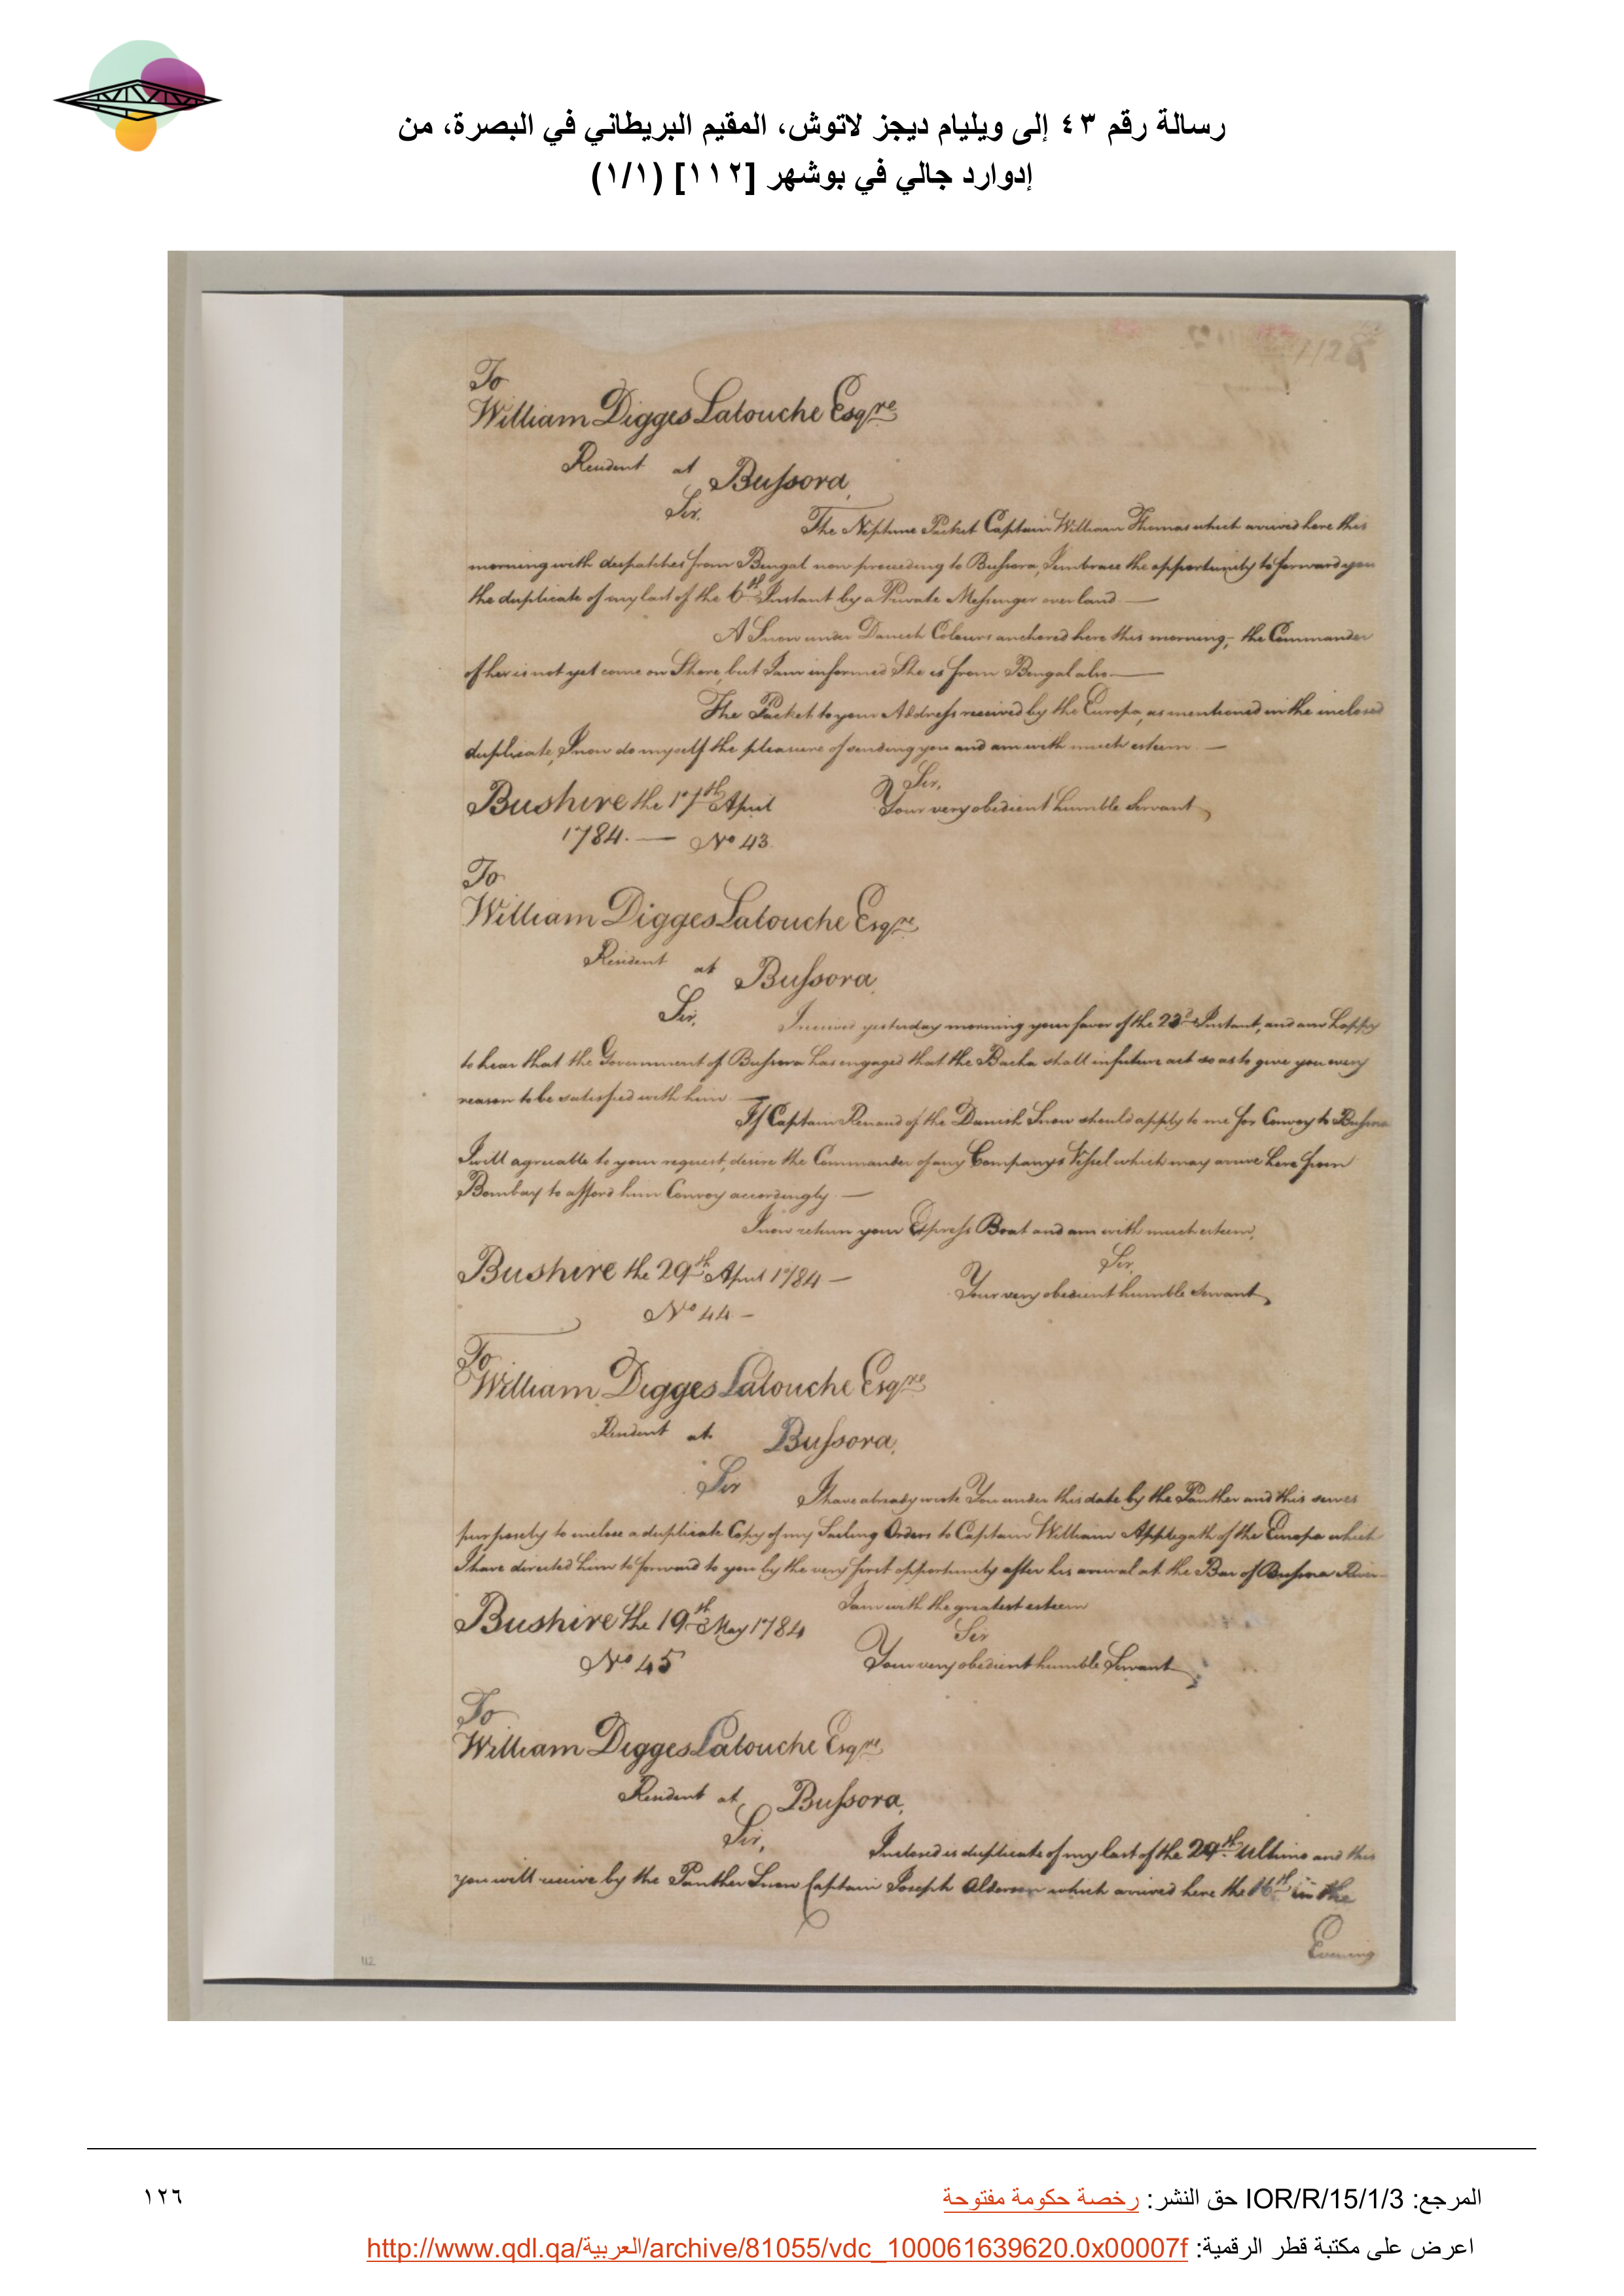 رسالة رقم ٤٣ إلى ويليام ديجز لاتوش، المقيم البريطاني في البصرة، من
إدوارد جالي في بوشهر [١١٢] (١/١)
To
William Digges Latouche Esqre
Resident at Bussora,
Sir,
The Neptune Packet Captain William Thomas which arrived here this
morning with dispatches from Bengal now proceeding to Bussora, I embrace the opportunity to forward you
the duplicate of my last of the 6th Instant by a Private Messenger overland.—
A Snow under Danish Colours anchored here this morning;- the Commander
of her is not yet come on Shore, but I am informed She is from Bengal also—
The Packet to your Address received by the Europa, as mentioned in the inclosed
duplicate, I now do myself the pleasure of sending you and am with much esteem.—
Sir,
Bushire the 17th April Your very obedient humble Servant
1784.— No 43.
To
William Digges Latouche Esqre
Resident at Bussora,
Sir,
I received yesterday morning your favor of the 23d Instant, and am happy
to hear that the Government of Bussora has engaged that the Bacha shall in future act so as to give you every
reason to be satisfied with him—
If Captain Renaud of the Danish Snow should apply to me for Convoy to Bussora
I will agreeable to your request, desire the Commander of any Companys Vessel which may arrive here from
Bombay to afford him Convoy accordingly—
I now return your Express Boat and am with much esteem,
Sir,
Bushire the 29th April 1784— Your very obedient humble Servant,
No 44-
To
William Digges Latouche Esqre
Resident at Bussora,
Sir
I have already wrote You under this date by the Panther and this serves
purposely to inclose a duplicate Copy of my Sailing Orders to Captain William Applegath of the Europa which
I have directed him to forward to you by the very first opportunity after his arrival at the Bar of Bussora River-
I am with the greatest esteem
Sir
Bushire the 19th May 1784 Your very obedient humble Servant
No 45
To
William Digges Latouche Esqre
Resident at Bussora,
Sir,
Inclosed is duplicate of my last of the 29th Ultimo and this
you will receive by the Panther Snow Captain Joseph Alderson which arrived here the 16th in the
Evening
112
المرجع: IOR/R/15/1/3 حق النشر: رخصة حكومة مفتوحة
١٢٦
اعرض على مكتبة قطر الرقمية: http://www.qdl.qa/العربية/archive/81055/vdc_100061639620.0x00007f